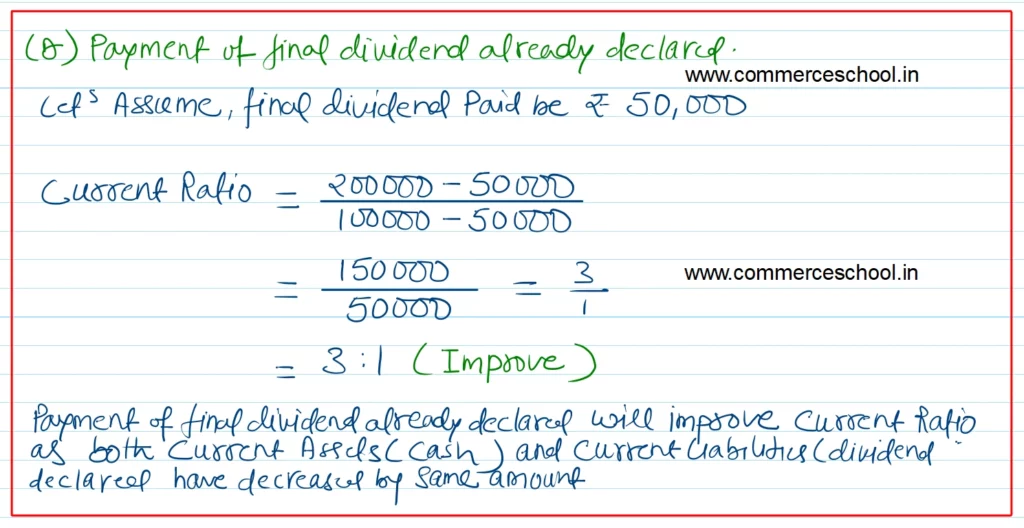 (8) Payment of final dividend already declared.
www.commerceschool.in
Let's Assume, final dividend Paid be ₹ 50,000
Current Ratio = 200000 - 50000
100000 - 50000
= 150000 = 3
50000 1
www.commerceschool.in
= 3:1 (Improve)
Payment of final dividend already declared will improve Current Ratio
as both Current Assets (Cash) and Current Liabilities (dividend
declared have decreased by same amount